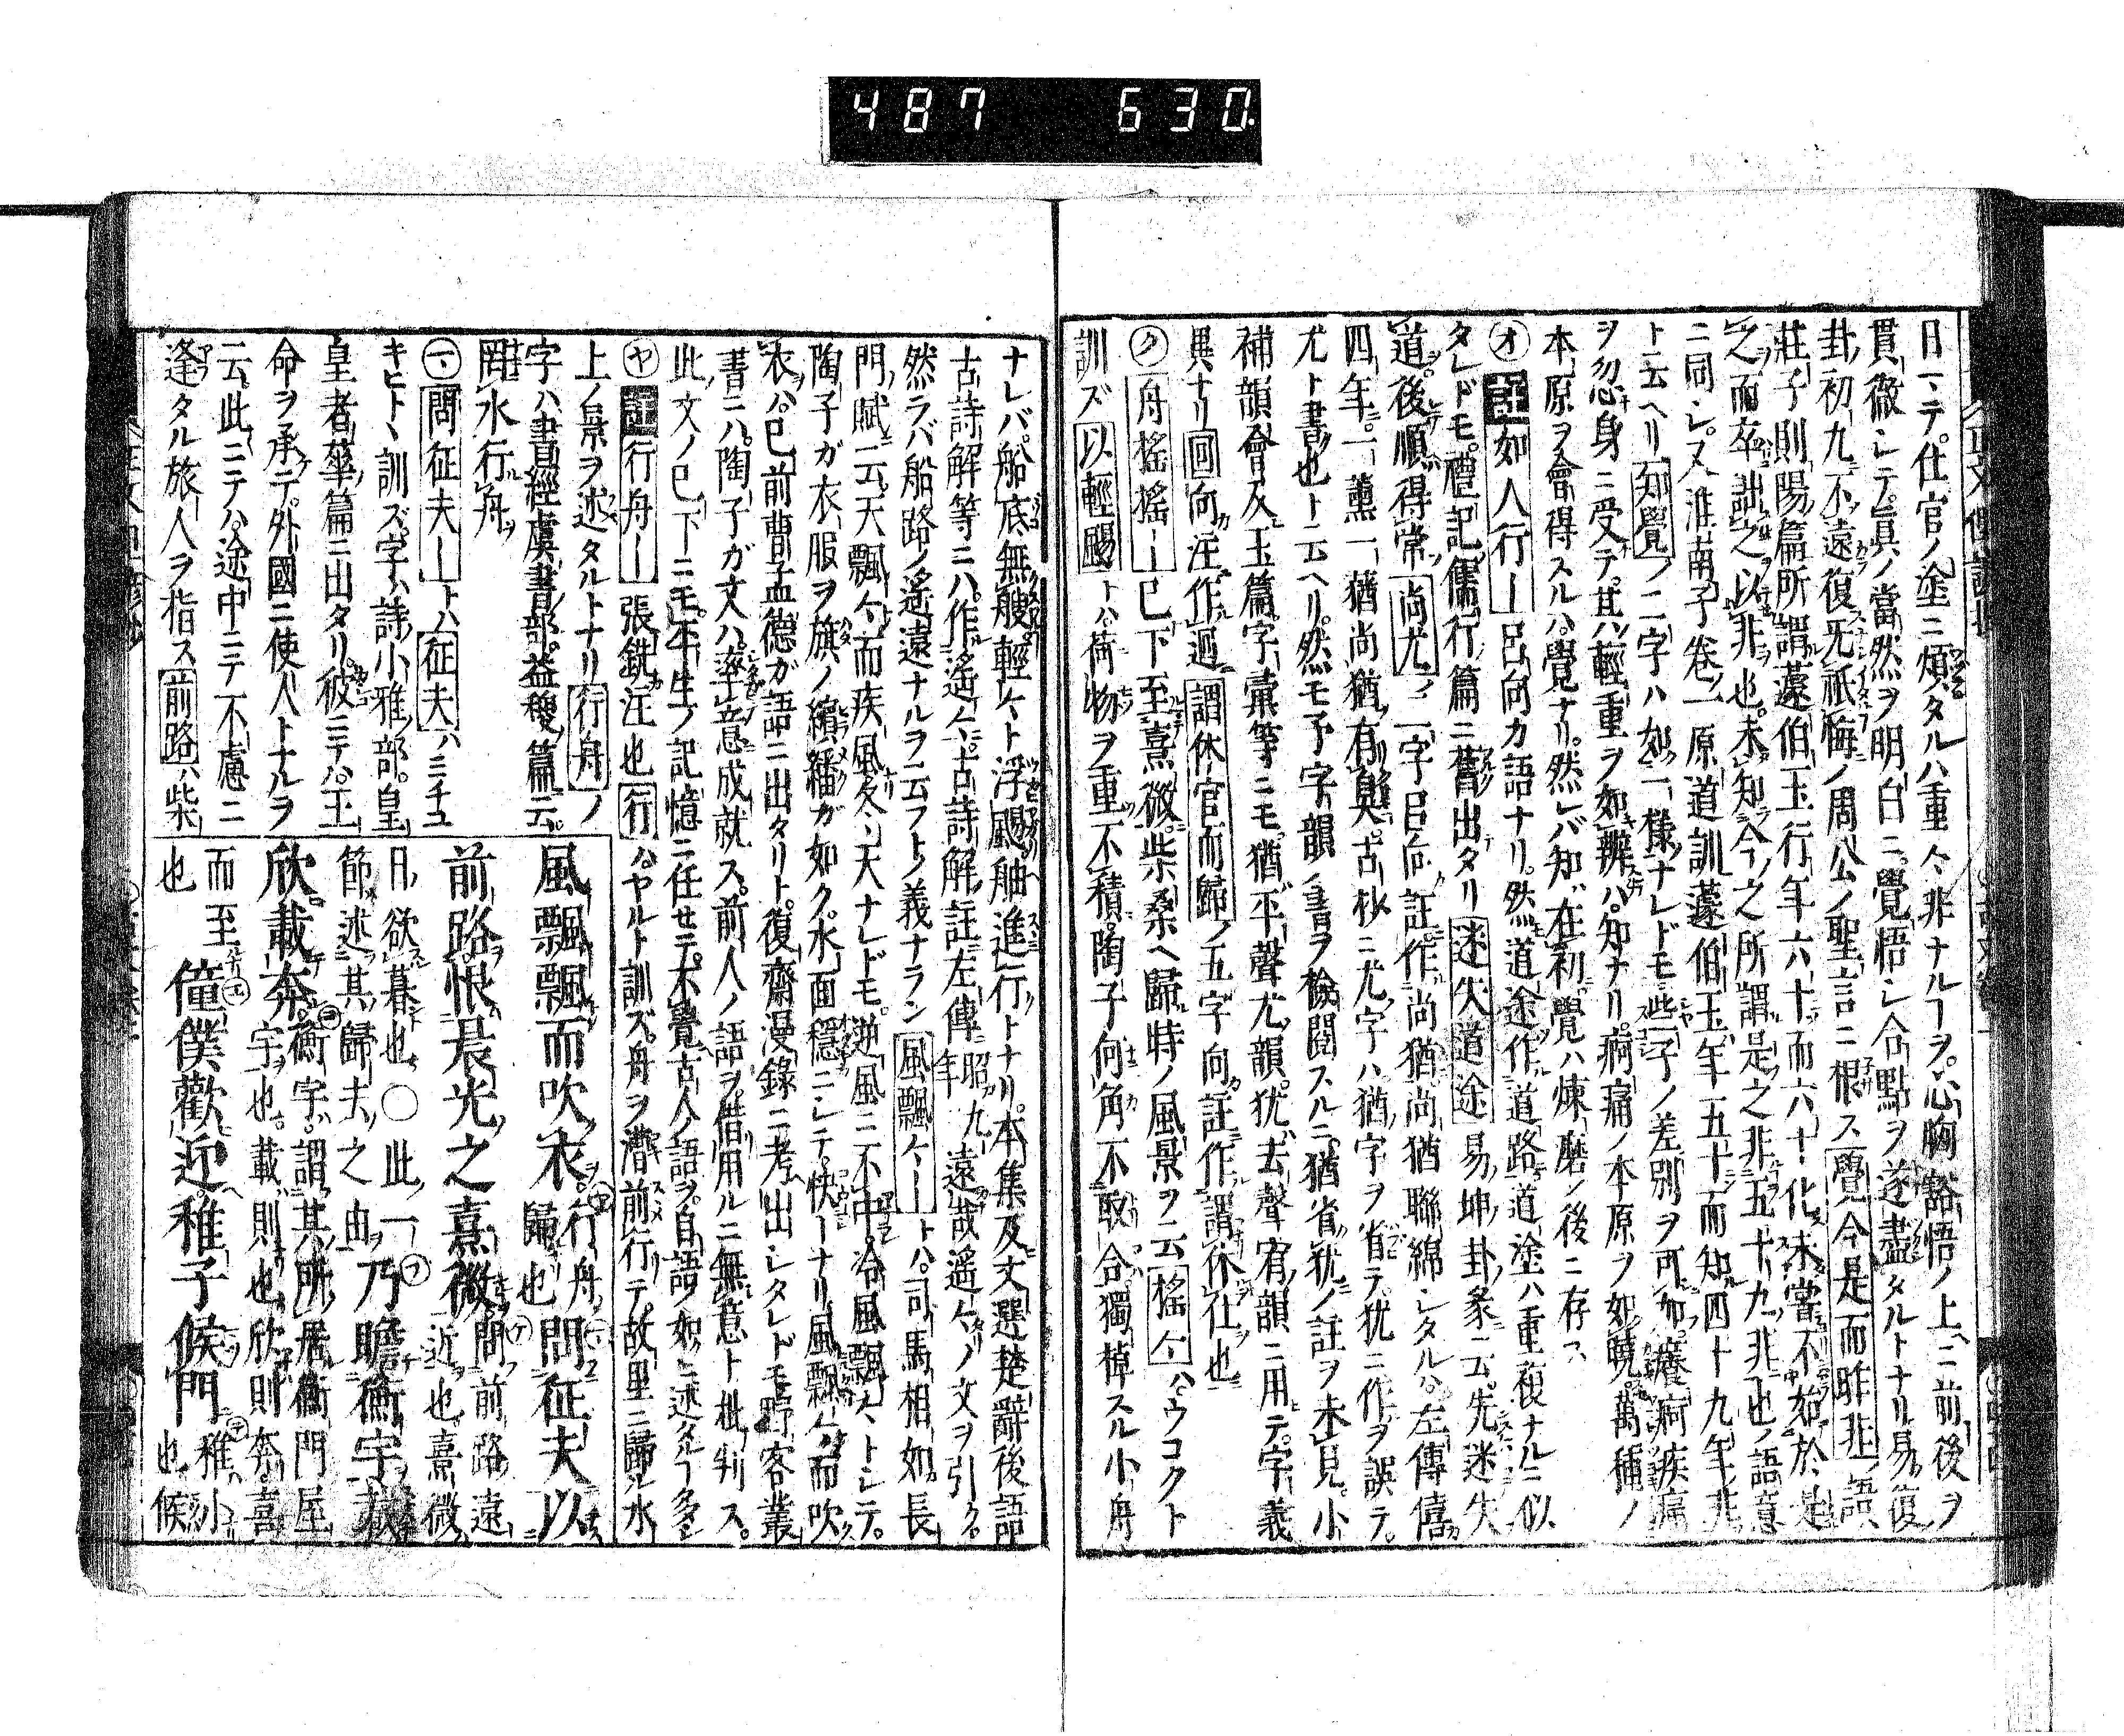 487 630
日ニテ仕官ノ塗ニ煩タルハ重々非ナルヿヲ心胸豁悟ノ上ニ前後ヲ
貫徹シテ眞ノ當然ヲ明白ニ覺悟シ合點ヲ遂盡タルトナリ易復
卦初九不遠復无祇悔ノ周公ノ聖言ニ根ス覺今是而昨非ノ語
莊子則陽篇所謂蘧伯玉行年六十而六十化未嘗不始於是
之而卒詘之以非也未知今之所謂是之非五十九非也ノ語意
ニ同シ又淮南子卷一原道訓蘧伯玉年五十而知四十九年非
ト云ヘリ知覺ノ二字ハ如一樣ナレドモ些子ノ差別ヲ可知癢痾疾痛
ヲ忽身ニ受テ其輕重ヲ如辨ハ知ナリ痾痛ノ本原ヲ如曉萬種ノ
本原ヲ會得スルハ覺ナリ然レバ知在初覺ハ煉磨ノ後ニ存ス
オ 註如人行ー呂向カ語ナリ然道途作道路道塗ハ重複ナルニ似
タレドモ禮記儒行篇ニ舊出タリ迷失道途易坤卦彖云先迷失
道後順得常尚尤ノ二字呂向註作尚猶尚猶聯綿シタルハ左傳僖
四年一薰一蕕尚猶有臭古抄ニ尤字ハ猶字ヲ省テ犹ニ作ヲ誤テ
尤ト書也ト云ヘリ然モ予字韻ノ書ヲ檢閲スルニ猶省犹ノ註ヲ未見小
補韻會及玉篇字彙等ニモ猶平聲尤韻犹去聲宥韻ニ用テ字義
異ナリ回向注作迴謂休官而歸ノ五字向註作謂休仕也
ク 舟搖搖ー已下至熹微柴桑ヘ歸時ノ風景ヲ云搖々ハウコクト
訓ズ以輕颺トハ荷物ヲ重不積陶子何角不取合獨棹スル小舟
ナレバ船底無艘輕々ト浮颺舳進行トナリ本集及文選楚辭後語
古詩解等ニハ作遙々古詩解註左傳昭九年遠哉遙々ノ文ヲ引ク
然ラバ船路ノ遙遠ナルヲ云フトノ義ナラン風飄々ートハ司馬相如長
門賦云天飄々而疾風冬天ナレドモ逆風ニ不中冷風飄々トシテ
陶子ガ衣服ヲ旗ノ繽繙ガ如ク水面穩ニシテ快ーナリ風飄々而吹
衣ハ已前曹孟德ガ語ニ出タリト復齋漫錄ニ考出シタレドモ野客叢
書ニハ陶子ガ文ハ率意成就ス前人ノ語ヲ借用ルニ無意ト批判ス
此文ノ已下ニモ平生ノ記憶ニ任セテ不覺古人ノ語ヲ自語ノ如ニ述タルヿ多シ
ヤ 註行舟ー張銑注也行ハヤルト訓ズ舟ヲ漕前行テ故里ニ歸ル水
上ノ景ヲ述タルトナリ行舟ノ
字ハ書經虞書部益稷篇云
罔水行舟
マ 問征夫ートハ征夫ハミチユ
キヒト訓ズ字ハ詩小雅部皇
皇者華篇ニ出タリ彼ニテハ王
命ヲ承テ外國ニ使人トナルヲ
云此ニテハ途中ニテ不慮ニ
逢タル旅人ヲ指ス前路ハ柴
風飄飄而吹衣行舟歸也問征夫以
前路恨晨光之熹微問前路遠近也熹微
日欲暮也○此一節述其歸去之由乃瞻衡宇載
欣載奔衡宇謂其所居衡門屋宇也載則也欣則奔喜
而至也僮僕歡迎稚子候門稚小也候